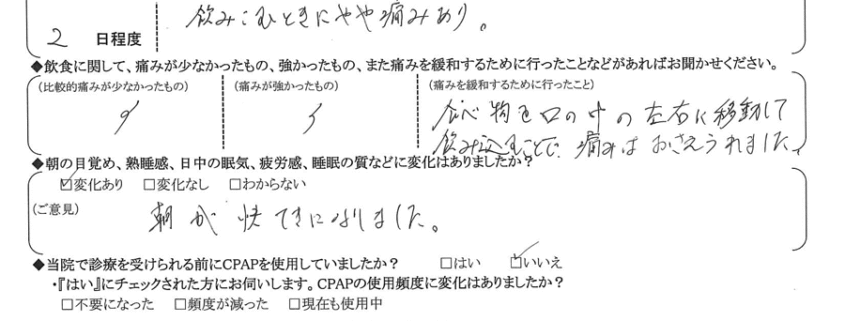 飲みこむときにやや痛みあり。
2 日程度
◆飲食に関して、痛みが少なかったもの、強かったもの、また痛みを緩和するために行ったことなどがあればお聞かせください。
(比較的痛みが少なかったもの) (痛みが強かったもの) (痛みを緩和するために行ったこと)
食べ物を口の中の左右に移動して
飲み込むことで、痛みはおさえられました。
◆朝の目覚め、熟睡感、日中の眠気、疲労感、睡眠の質などに変化はありましたか?
☑変化あり □変化なし □わからない
(ご意見)
朝が快てきになりました。
◆当院で診療を受けられる前にCPAPを使用していましたか? □はい ☑いいえ
・『はい』にチェックされた方にお伺いします。CPAPの使用頻度に変化はありましたか?
□不要になった □頻度が減った □現在も使用中